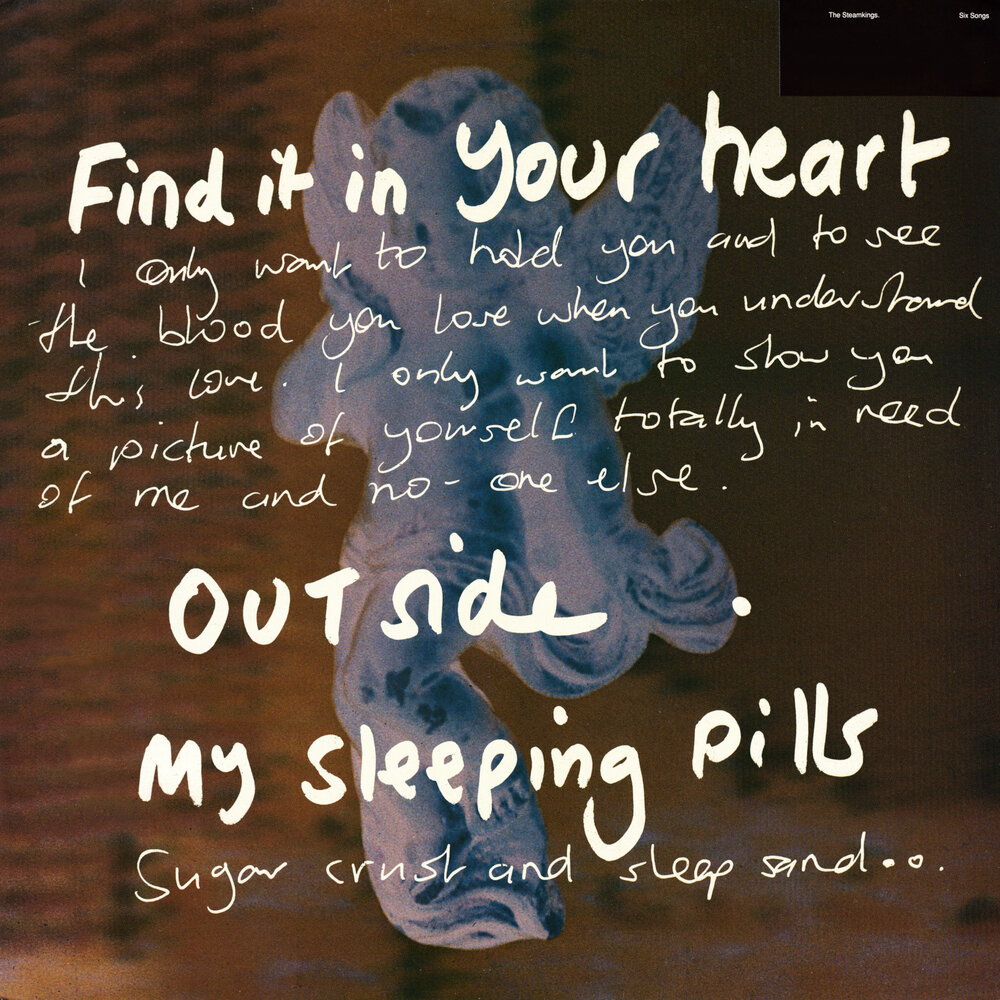 The Steamkings. Six Songs
Find it in your heart
I only want to hold you and to see
the blood you lose when you understand
this love. I only want to show you
a picture of yourself totally in need
of me and no-one else.
OUTside.
My sleeping pills
Sugar crust and sleep sand...